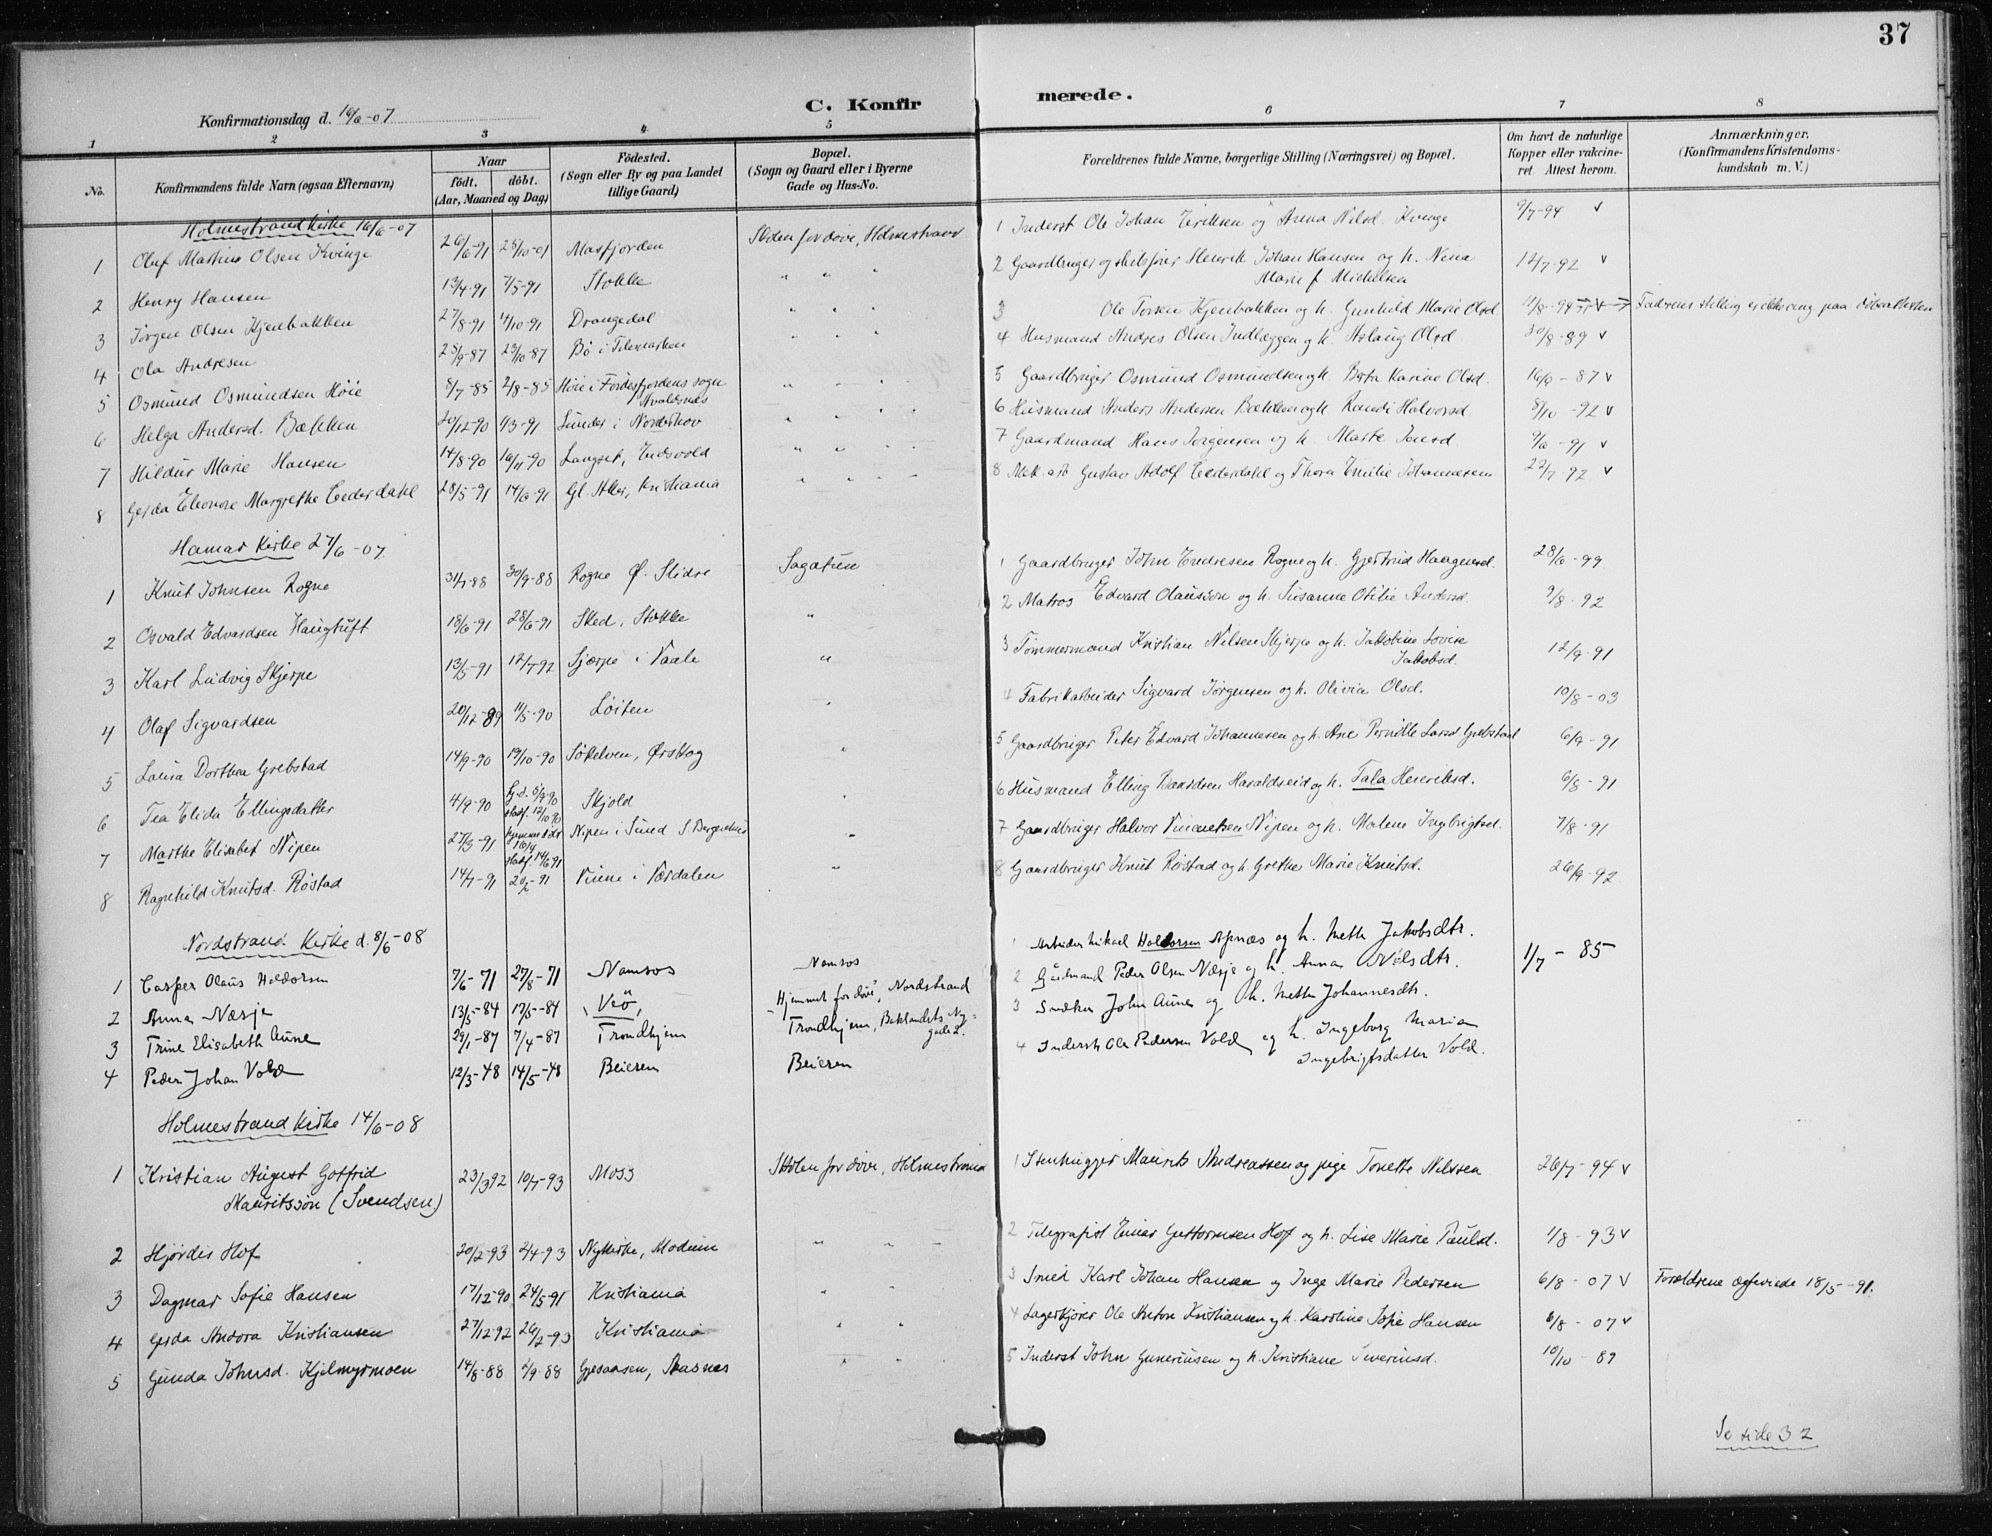 37
C. Konfir merede.
Konfirmationsdag d. 16/6-07
1 2 3 4 5 6 7 8
No.
Konfirmandens fulde Navn (ogsaa Efternavn)
Naar
født. døbt.
(Aar, Maaned og Dag)
Fødested.
(Sogn eller By og paa Landet
tillige Gaard)
Bopæl.
(Sogn og Gaard eller i Byerne
Gade og Hus-No.
Forældrenes fulde Navne, borgerlige Stilling (Næringsvei) og Bopæl.
Om havt de naturlige
Kopper eller vakcine-
ret. Attest herom.
Anmærkninger.
(Konfirmandens Kristendoms-
kundskab m. V.)
Holmestrand Kirke 16/6-07
1 Oluf Martin Olsen Kvinge 26/6-91 25/10-01 Masfjorden Skolen for døve, Holmestrand 1 Inderst Ole Johan Eriksen og Anna Nilsd. Kvinge 9/7-94 v
2 Henry Hansen 13/4-91 7/5-91 Stokke " " " 2 Gaardbruger og skibsfører Henrik Johan Hansen og h. Nina Marie f. Michelsen 12/7-92 v
3 Jørgen Olsen Kjenbakken 27/8-91 4/10-91 Drangedal " " " 3 Ole Torsen Kjenbakken og h. Gunhild Marie Olsd 11/8-94 v Fadrens stilling er ikke opg paa døbeattesten
4 Ola Andresen 25/9-87 23/10-87 Bø i Telemarken " " " 4 Husmand Andres Olsen Indlæggen og h. Aslaug Olsd. 30/8-89 v
5 Osmund Osmundsen Høie 8/7-85 2/8-85 Høie i Førdesfjordens sogn Avaldsnæs " " " 5 Gaardbruger Osmund Osmundsen og h. Berta Karine Olsd. 16/9-87 v
6 Helga Andersd. Bækken 20/12-90 1/3-91 Lunder i Norderhov " " " 6 Husmand Anders Andersen Bækken og h. Randi Halvorsd. 8/10-92 v
7 Hildur Marie Hansen 14/8-90 16/11-90 Langset, Eidsvold " " " 7 Gaardmand Hans Jørgensen og h. Marte Jensd. 9/6-91 v
8 Gerda Eleonore Margrethe Cederdahl 28/5-91 14/6-91 Gl. Aker, Kristiania " " " 8 Mek. arb Gustav Adolf Cederdahl og Thora Emilie Johannesen 22/7-92 v
Hamar Kirke 27/6-07
1 Knut Johnsen Rogne 31/7-88 30/9-88 Rogne Ø. Slidre Sagatun 1 Gaardbruger John Endresen Rogne og h. Gjertrud Haagensd. 28/6-99
2 Osvald Edvardsen Haugtuft 18/6-91 28/6-91 Sked, Stokke " 2 Matros Edvard Olaussøn og h. Susanne Otilie Andersd. 9/8-92
3 Karl Ludvig Skjerpe 13/5-91 12/7-92 Sjærpe i Vaale " 3 Tømmermand Kristian Nilsen Skjerpe og h. Jakobine Lovise Jakobsd. 12/9-91
4 Olaf Sigvardsen 20/12-89 11/5-90 Løiten " 4 Fabrikarbeider Sigvard Jørgensen og h. Olivia Olsd. 10/8-03
5 Laura Dorthea Grebstad 14/9-90 19/10-90 Søkelven, Ørskog " 5 Gaardbruger Peter Edvard Johannesen og h. Ane Pernille Larsd Grebstad 6/9-91
6 Tea Elida Ellingsdatter 4/9-90 hj.d. 5/9-90 stadf. 12/10 90 Skjold " 6 Husmand Elling Haraldseid og h. Tala Henriksd. 6/8-91
7 Marthe Elisabet Nipen 27/3-91 hjemmedøbt stadf. 14/6 91 Nipen i Sund S. Bergenhus " 7 Gaardbruger Halvor Nipen og h. Malene Ingbrigtsd. 7/8-91
8 Ragnhild Knutsd. Røstad 14/7-91 Vinne i Værdalen " 8 Gaardbruger Knut Røstad og h. Grethe Marie Knutsd. 26/9-92
Nordstrand Kirke d. 8/6-08
1 Casper Olaus Holdorsen 7/6-71 27/8-71 Namsos Namsos 1 Arbeider Mikael Haldorsen Apnæs og h. Meth Jakobsdtr.
2 Anna Næsje 13/5-84 17/5-84 Veö, Hjemmet for døve, Nordstrand 2 Gårdmand Peder Olsen Næsje og h. Anna Nilsdtr. 1/7-85
3 Trine Elisabeth Aune 29/1-87 7/4-87 Trondhjem Trondhjem, Baklandets Ny- gade 2. 3 Snedker John Aune og h. Meth Johannesdtr.
4 Peder Johan Vold 12/3-48 14/5-48 Beieren Beieren 4 Inderst Ole Pedersen Vold og h. Ingeborg Maria Ingebrigtsdatter Vold.
Holmestrand Kirke 14/6-08
1 Kristian August Gotfrid Mauritssøn (Svendsen) 23/3 92 10/7-93 Moss Skolen for døve, Holmestrand 1 Stenhugger Maurits Andreassen og pige Tonette Nilssen 26/7-94 v
2 Hjørdis Hof 20/2-93 2/4-93 Nykirke, Modum " " " 2 Telegrafist Einar Guttormsen Hof og h. Lise Marie Paulsd. 1/8-93 v
3 Dagmar Sofie Hansen 17/12-90 24/5-91 Kristiania " 3 Smed Karl Johan Hansen og Inge Marie Pedersen 6/8-07 v Forældrene ægteviede 18/5-91.
4 Gerda Andora Kristiansen 27/12-92 26/2-93 Kristiania " " 4 Lagerkjører Ole Anton Kristiansen og h. Karoline Sofie Hansen 6/8-07 v
5 Gunda Johnsd. Kjelmyrmoen 14/8-88 2/9-88 Gjesaasen, Aasnes " " 5 Inderst John Gunerinsen og h. Kristiane Severinsd. 10/10-89
Se side 32